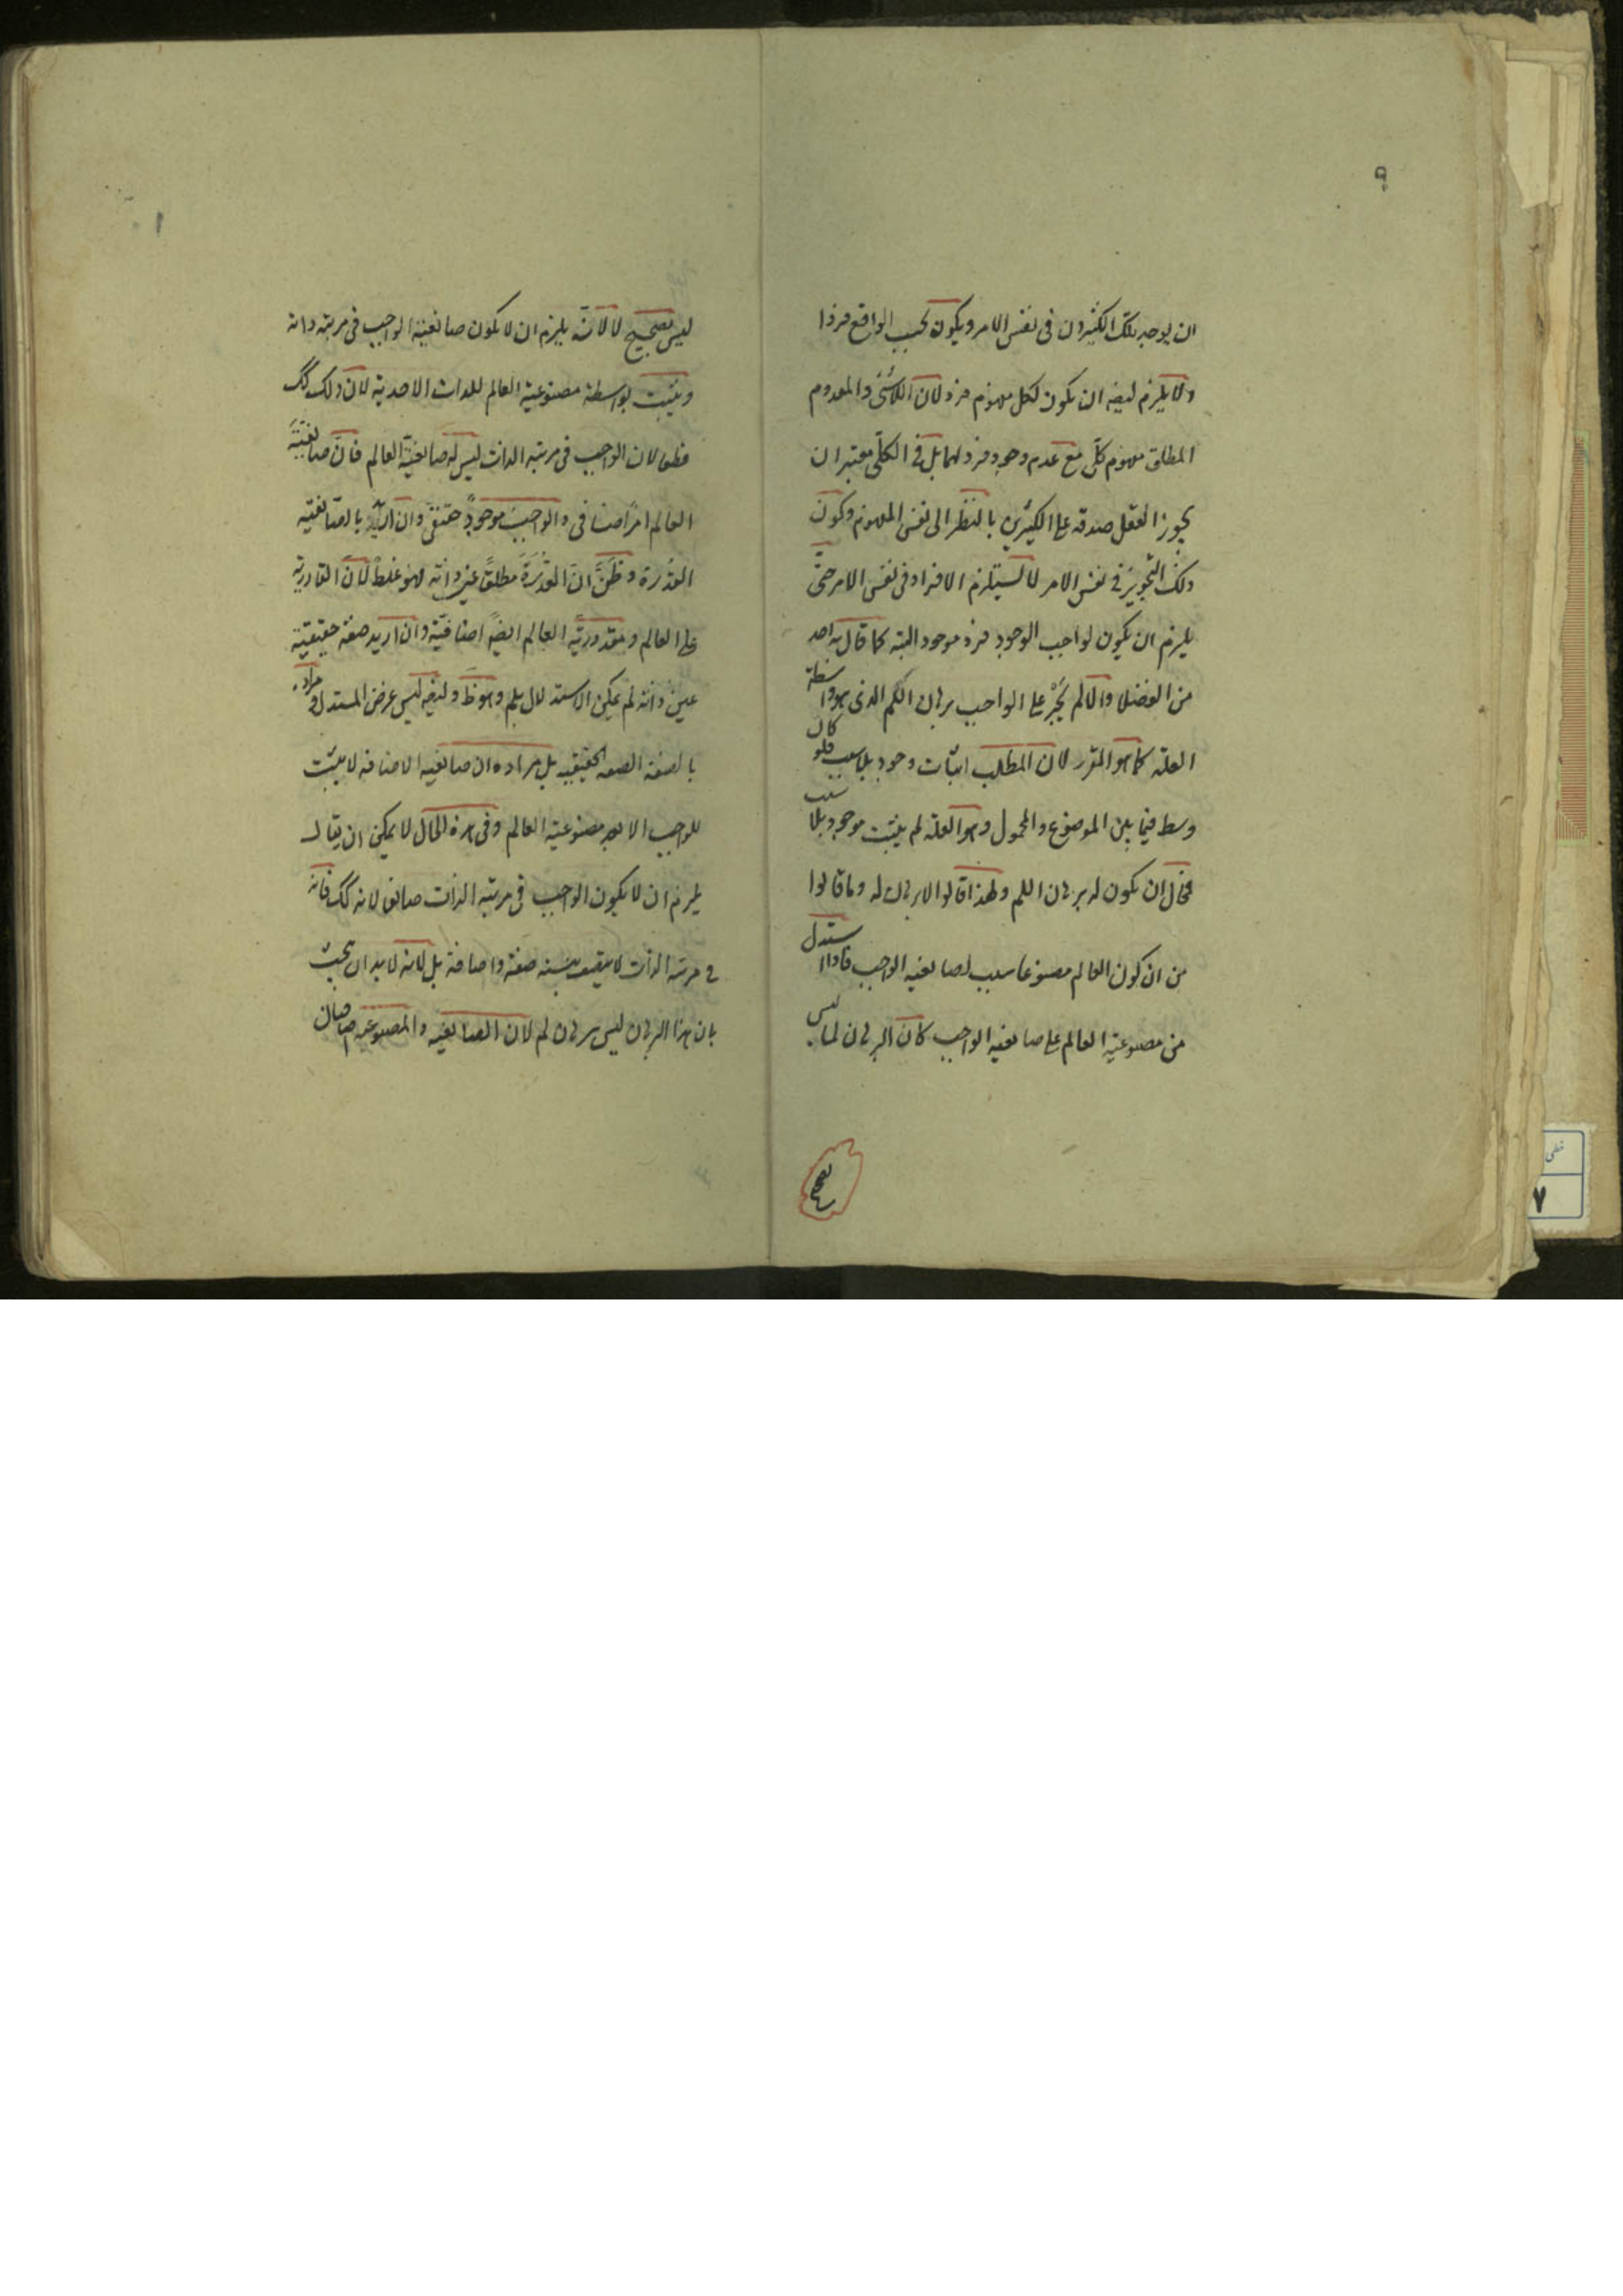 ٩
ان يوجد تلك الكثيرون فى نفس الامر ويكون بحسب الواقع فردا
ولا يلزم ايضا ان يكون لكل مفهوم فرد لان اللاشئ والمعدوم
المطلق مفهوم كلّى مع عدم وجود فرد لهما بل فى الكلّى معتبر ان
يجوز العقل صدقه على الكثيرين بالنظر الى نفس المفهوم وكون
ذلك التجويز فى نفس الامر لا يستلزم الافراد فى نفس الامر حتّى
يلزم ان يكون لواجب الوجود فرد موجود البته كما قال به احد
من الفضلا والا لم يجز على الواجب برهان اللّم الذى هو واسطة
العلّة كما هو المقرر لان المطلب اثبات وجود بلا سبب فلو كان
وسط فيما بين الموضوع والمحمول وهو العلة لم يثبت موجود بلا سبب
فمحال ان يكون له برهان اللم ولهذا قالوا لا برهان له وما قالوا
من ان كون العالم مصنوعا سبب لصانعيه الواجب فاذا استدل
من مصنوعية العالم على صانعيه الواجب كان البرهان لما ليس
بصحيح
ليس بصحيح لا لانّه يلزم ان لا يكون صانعية الواجب فى مرتبه ذاته
ويثبت بواسطة مصنوعية العالم للذات الاحدية لان ذلك كك
لان الواجب فى مرتبه الذات ليس له صانعية العالم فانّ صانعيّة
العالم امر اضافى والواجب موجود حقيقى وان اريد بالصانعيه
القدرة وظنّ انّ القدرة مطلقا عين ذاته فهو غلط لانّ القادرية
على العالم ومقدوريّة العالم ايضا اضافيّة وان اريد صفة حقيقية
عين ذاته لم يمكن الاستدلال بلم وهو ظ وايضا ليس غرض المستدل ومراده
بالصفة الصفه الحقيقيه بل مراده ان صانعيه الاضافه لا يثبت
للواجب الا بعد مصنوعية العالم وفى هذه الحال لا يمكن ان يقال
يلزم ان لا يكون الواجب فى مرتبه الذات صانعا لانه كك فانه
فى مرتبه الذات صفة واضافة بل لانه لا بد ان يجب
بان هذا البرهان ليس برهان لم لان الصانعيه والمصنوعيه